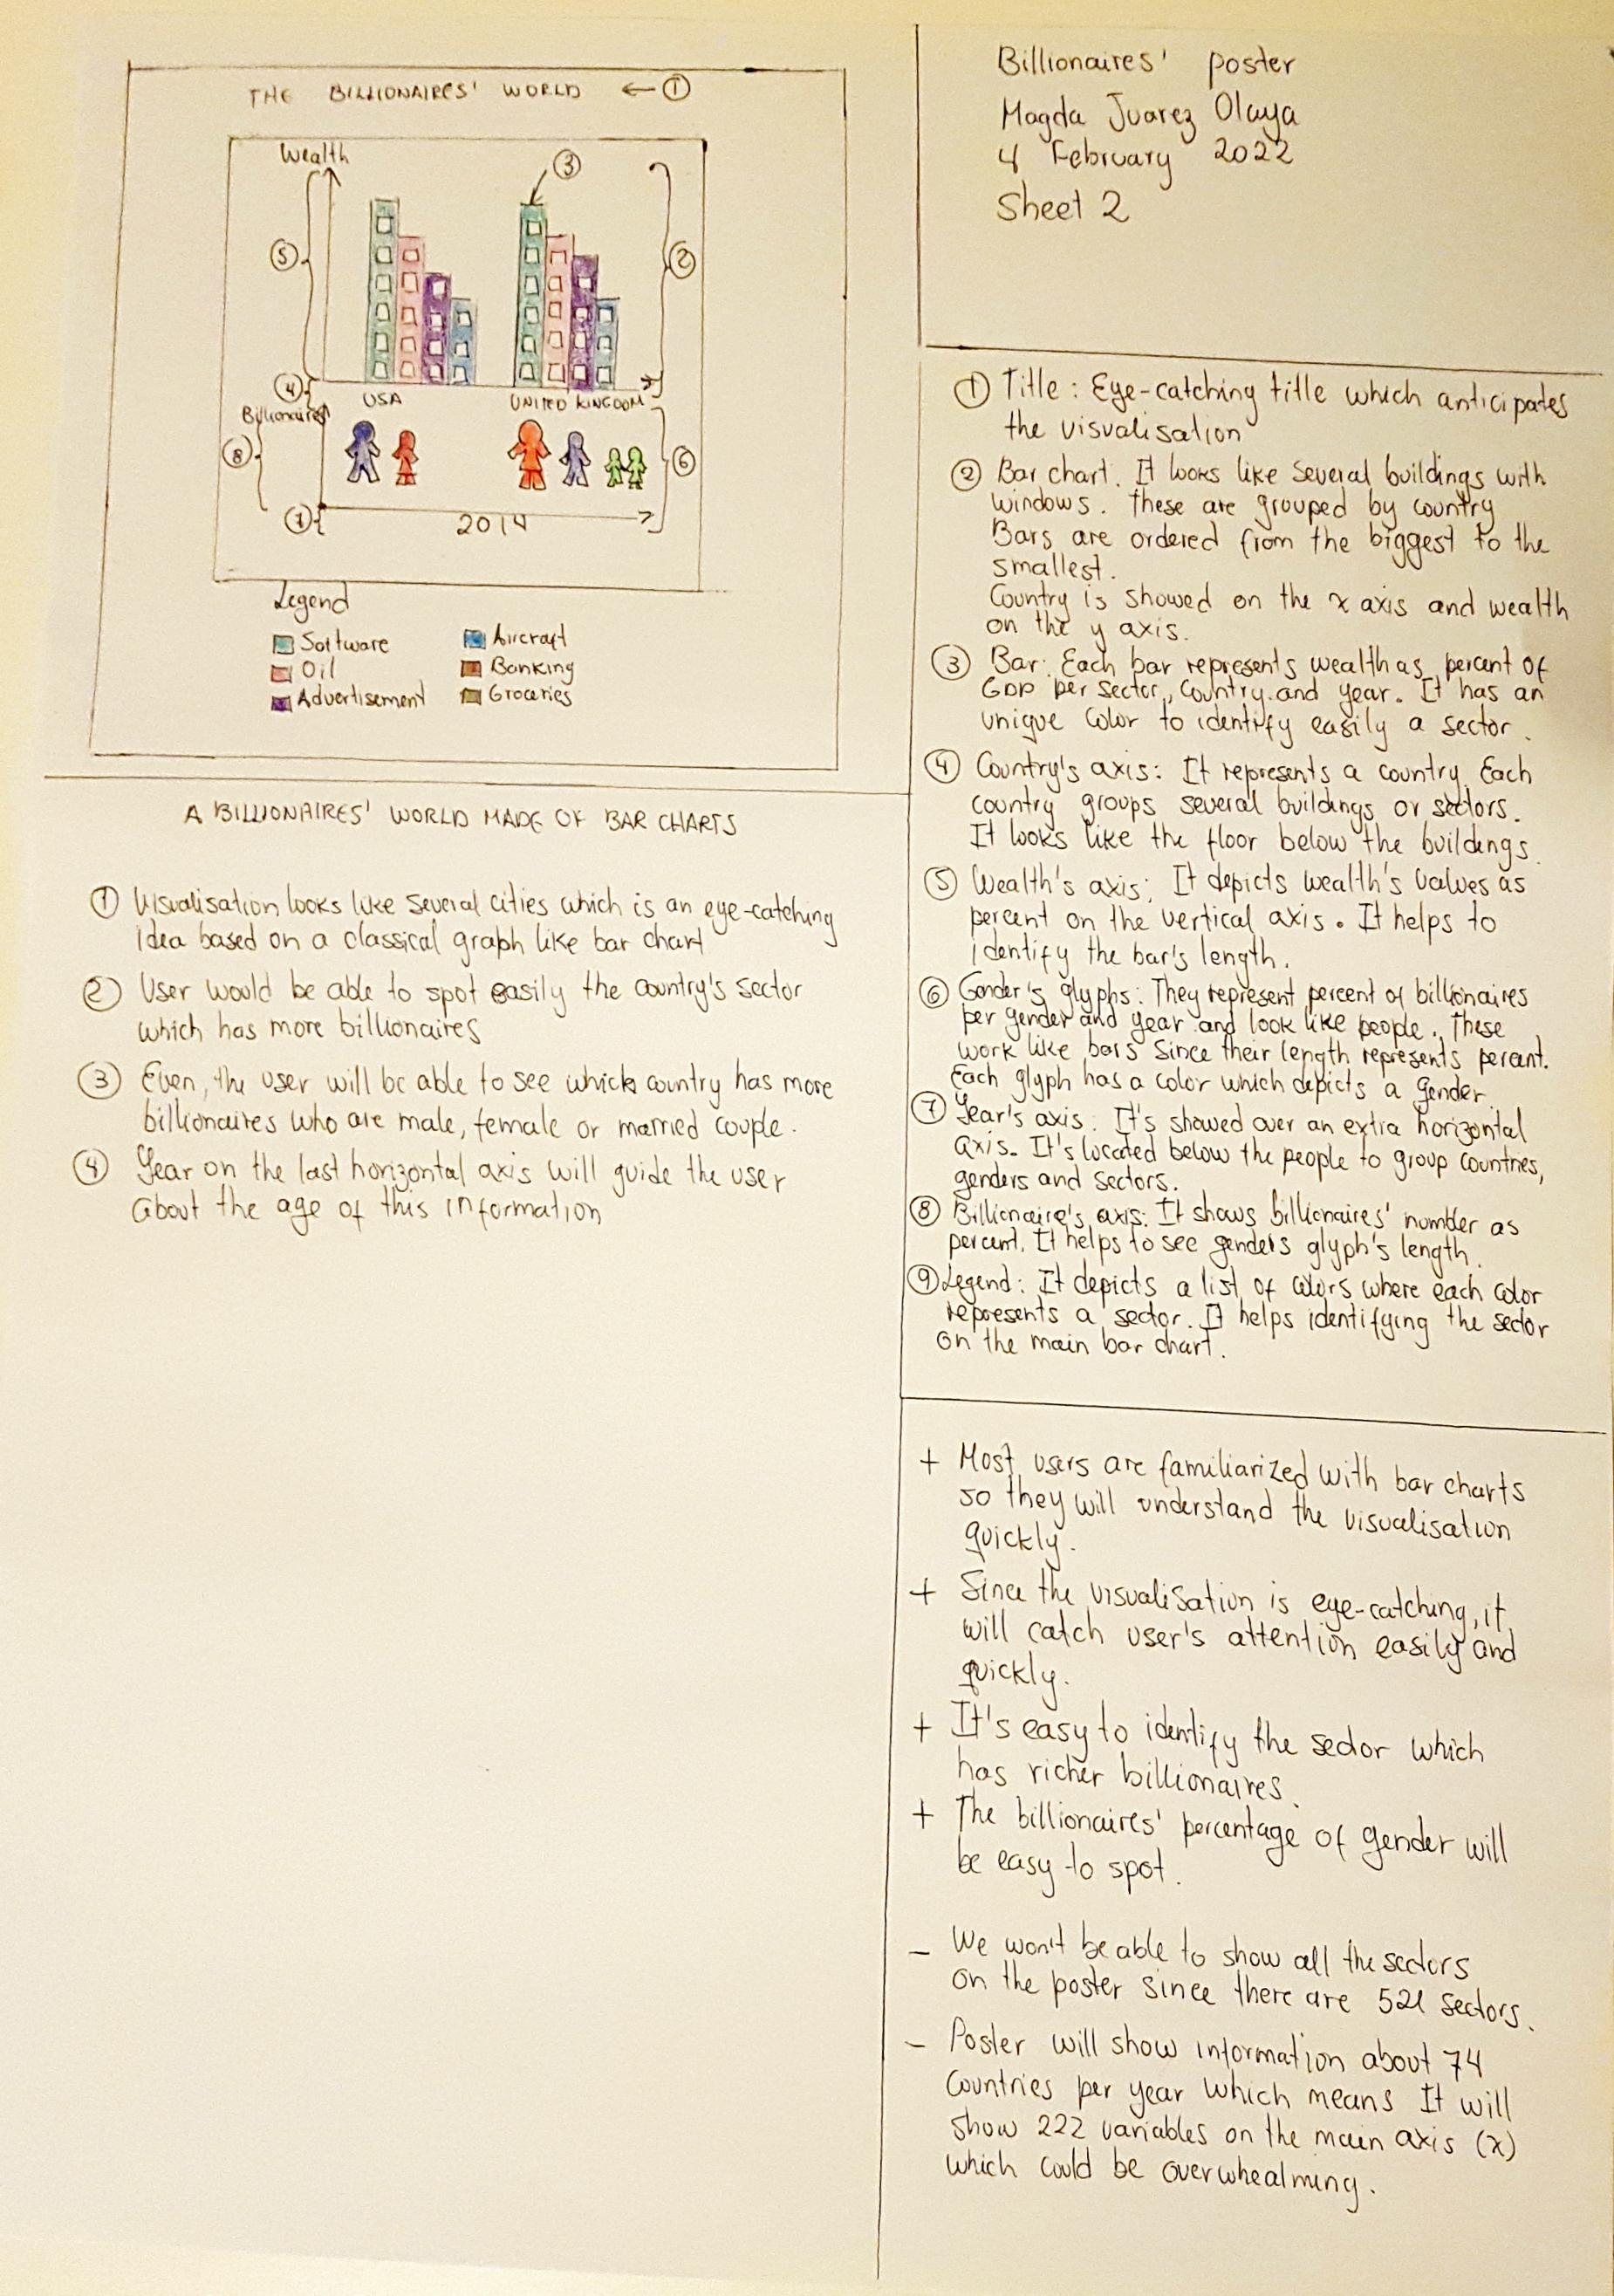 THE BILLIONAIRES' WORLD ← ①
Wealth
③
⑤
②
④
USA
UNITED KINGDOM
Billionaires
⑧
⑥
⑦
2014
Legend
Software
Aircraft
Oil
Banking
Advertisement
Groceries
A BILLIONAIRES' WORLD MADE OF BAR CHARTS
① Visualisation looks like several cities which is an eye-catching
idea based on a classical graph like bar chart
② User would be able to spot easily the country's sector
which has more billionaires
③ Even, the user will be able to see which country has more
billionaires who are male, female or married couple.
④ Year on the last horizontal axis will guide the user
about the age of this information
Billionaires' poster
Magda Juarez Olaya
4 February 2022
Sheet 2
① Title: Eye-catching title which anticipates
the visualisation
② Bar chart. It looks like several buildings with
windows. These are grouped by country
Bars are ordered from the biggest to the
smallest.
Country is showed on the x axis and wealth
on the y axis.
③ Bar: Each bar represents wealth as percent of
GDP per sector, country and year. It has an
unique color to identify easily a sector.
④ Country's axis: It represents a country. Each
country groups several buildings or sectors.
It looks like the floor below the buildings.
⑤ Wealth's axis: It depicts wealth's values as
percent on the vertical axis. It helps to
identify the bar's length.
⑥ Gender's glyphs: They represent percent of billionaires
per gender and year and look like people. These
work like bars since their length represents percent.
Each glyph has a color which depicts a gender.
⑦ Year's axis: It's showed over an extra horizontal
axis. It's located below the people to group countries,
genders and sectors.
⑧ Billionaire's axis: It shows billionaires' number as
percent. It helps to see genders glyph's length.
⑨ Legend: It depicts a list of colors where each color
represents a sector. It helps identifying the sector
on the main bar chart.
+ Most users are familiarized with bar charts
so they will understand the visualisation
quickly.
+ Since the visualisation is eye-catching, it
will catch user's attention easily and
quickly.
+ It's easy to identify the sector which
has richer billionaires.
+ The billionaires' percentage of gender will
be easy to spot.
- We won't be able to show all the sectors
on the poster since there are 521 sectors.
- Poster will show information about 74
countries per year which means It will
show 222 variables on the main axis (x)
which could be overwhealming.